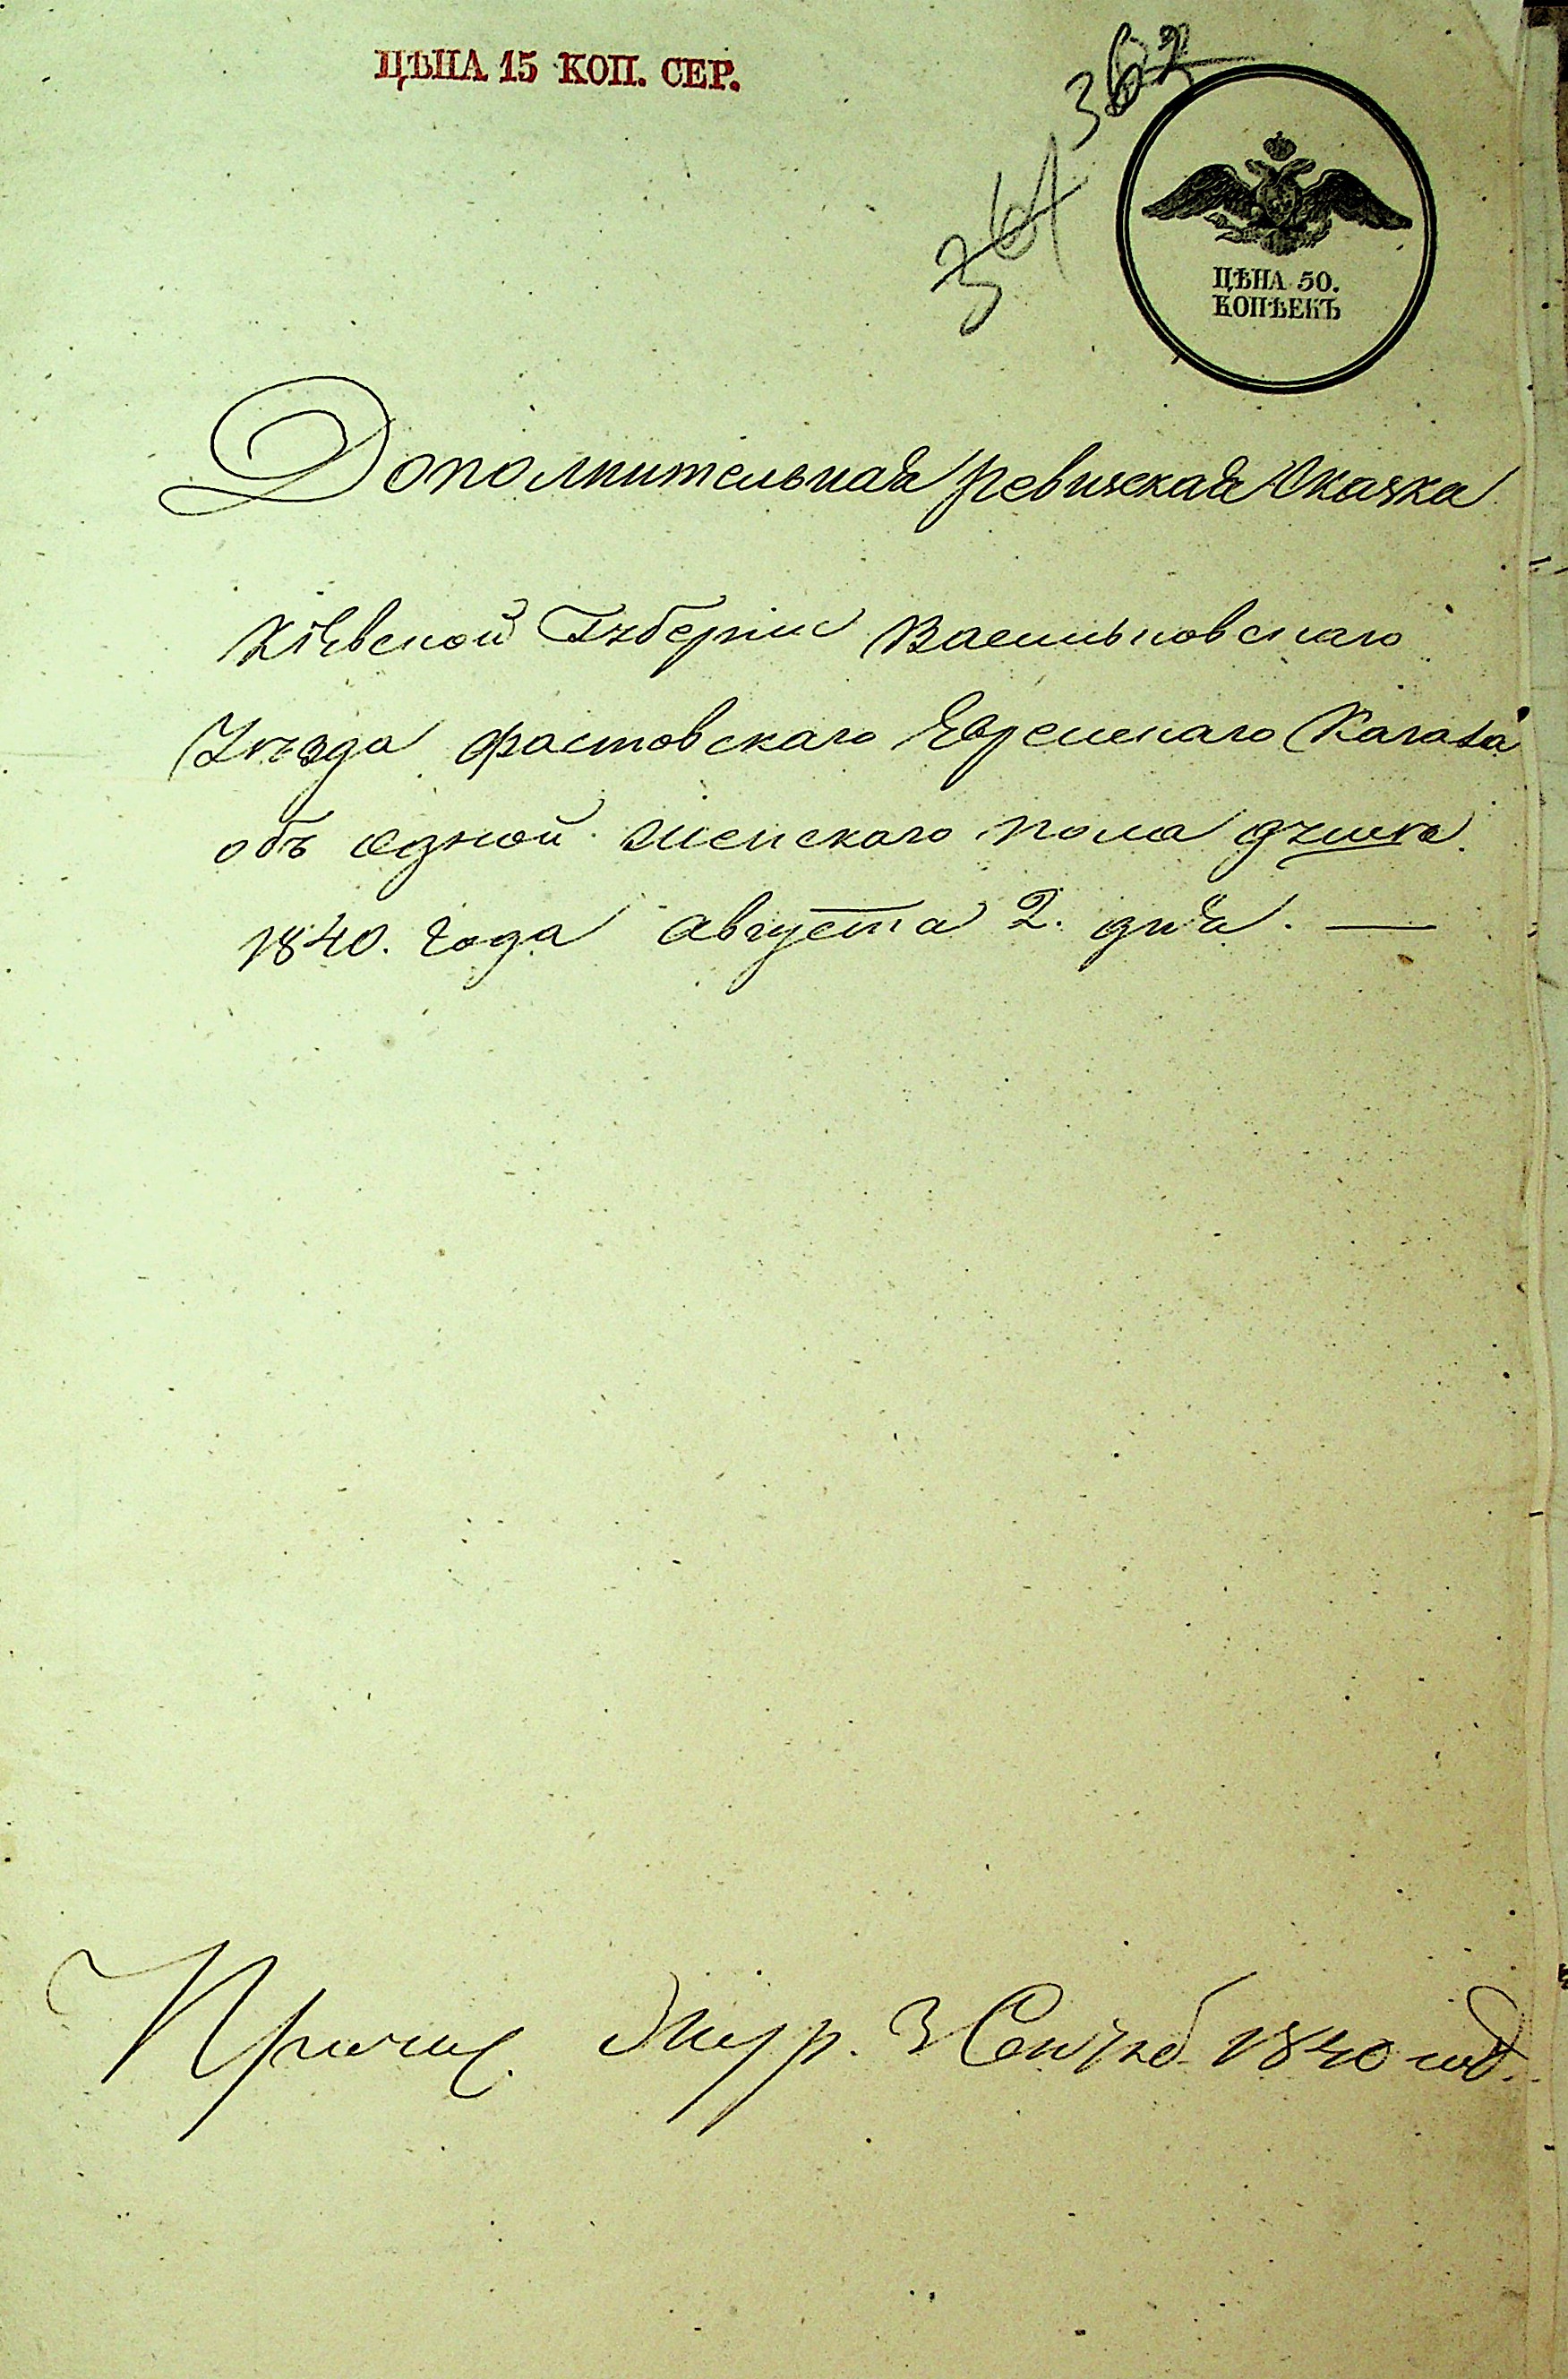 ЦѢНА 15 КОП. СЕР.
362
361
ЦѢНА 50.
КОПѢЕКЪ
Дополнительная ревизская Сказка
Кіевской Губерніи Васильковскаго
Уѣзда Фастовскаго Еврейскаго Кагала
объ одной женскаго пола душѣ.
1840. года августа 2. дня. —
Журр. 3 Сентяб. 1840 год.